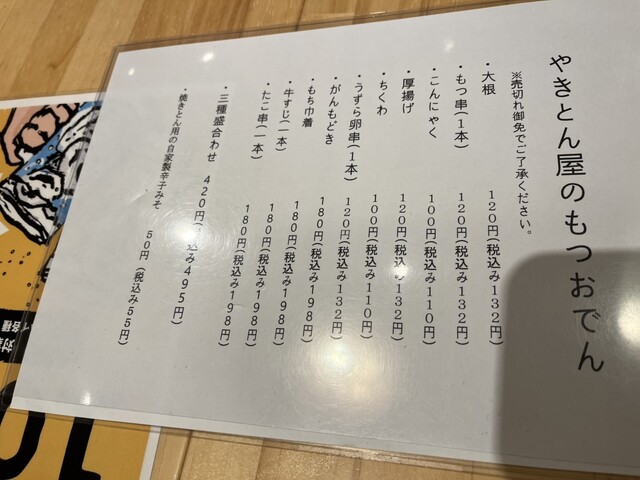 やきとん屋のもつおでん
※売切れ御免でご了承ください。
・大根 120円(税込み132円)
・もつ串(1本) 120円(税込み132円)
・こんにゃく 100円(税込み110円)
・厚揚げ 120円(税込み132円)
・ちくわ 100円(税込み110円)
・うずら卵串(1本) 120円(税込み132円)
・がんもどき 180円(税込み198円)
・もち巾着 180円(税込み198円)
・牛すじ(一本) 180円(税込み198円)
・たこ串(一本) 180円(税込み198円)
・三種盛合わせ 420円 込み495円)
・焼きとん用の自家製辛子みそ 50円 (税込み55円)
各種
10